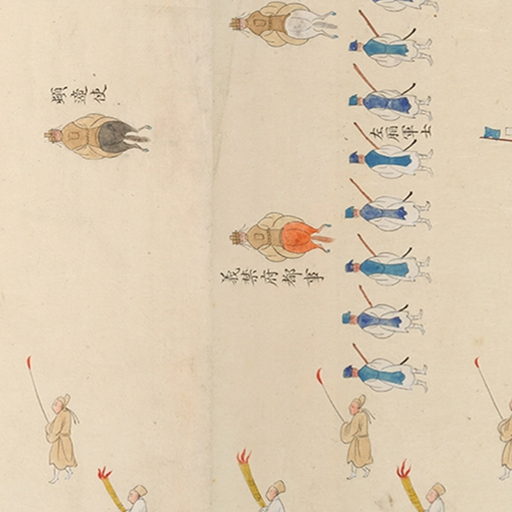 頓遞使
左廂軍士
義禁府都事